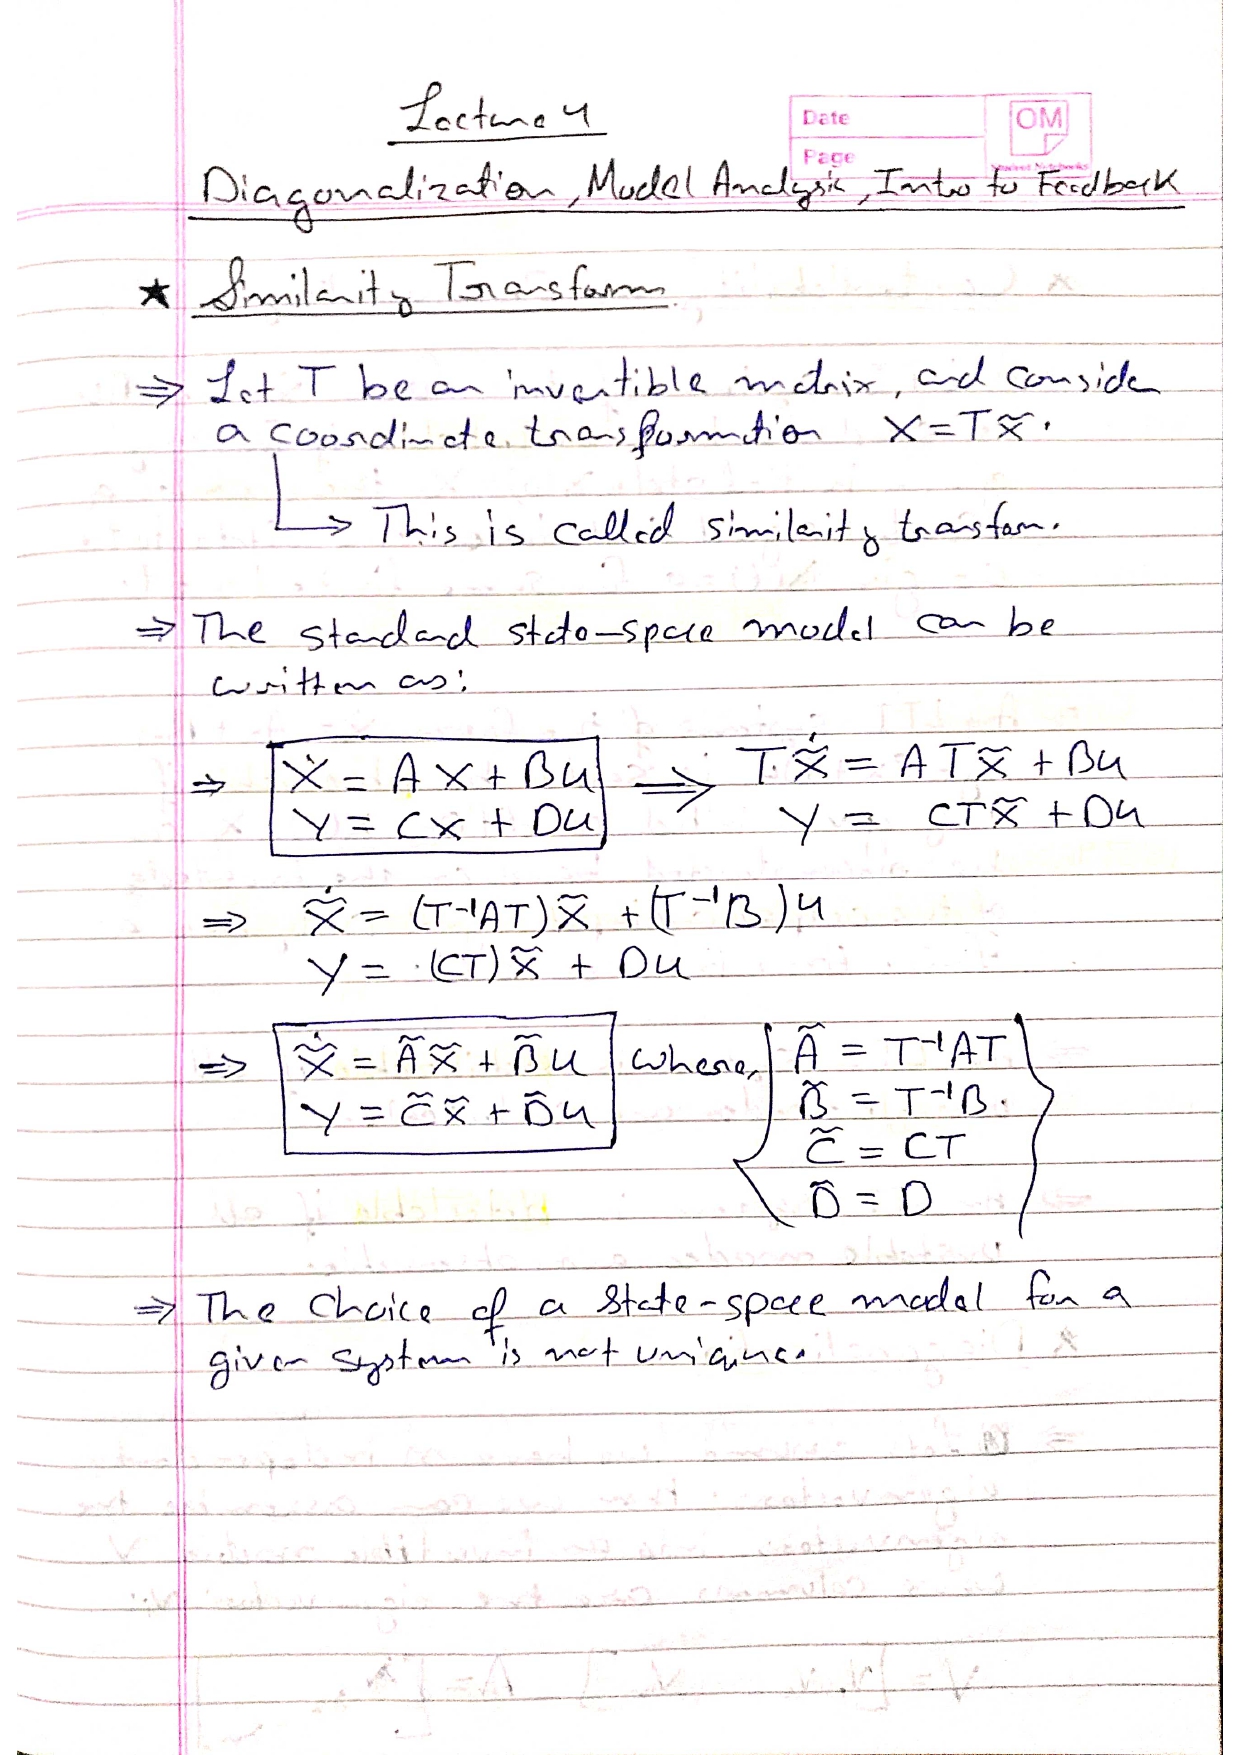 Lecture 4
Date
OM
Page
Diagonalization, Modal Analysis, Intro to Feedback
★ Similarity Transform
⇒ Let T be an invertible matrix, and consider
a coordinate transformation X = Tx̃.
↳ This is called similarity transform.
⇒ The standard state-space model can be
written as:
⇒ Ẋ = AX + Bu ⟹ T ẋ̃ = ATx̃ + Bu
Y = CX + Du Y = CTx̃ + Du
⇒ ẋ̃ = (T⁻¹AT)x̃ + (T⁻¹B)u
Y = (CT)x̃ + Du
⇒ ẋ̃ = Ãx̃ + B̃u where, Ã = T⁻¹AT
Y = C̃x̃ + D̃u B̃ = T⁻¹B.
C̃ = CT
D̃ = D
⇒ The choice of a state-space model for a
given system is not unique.